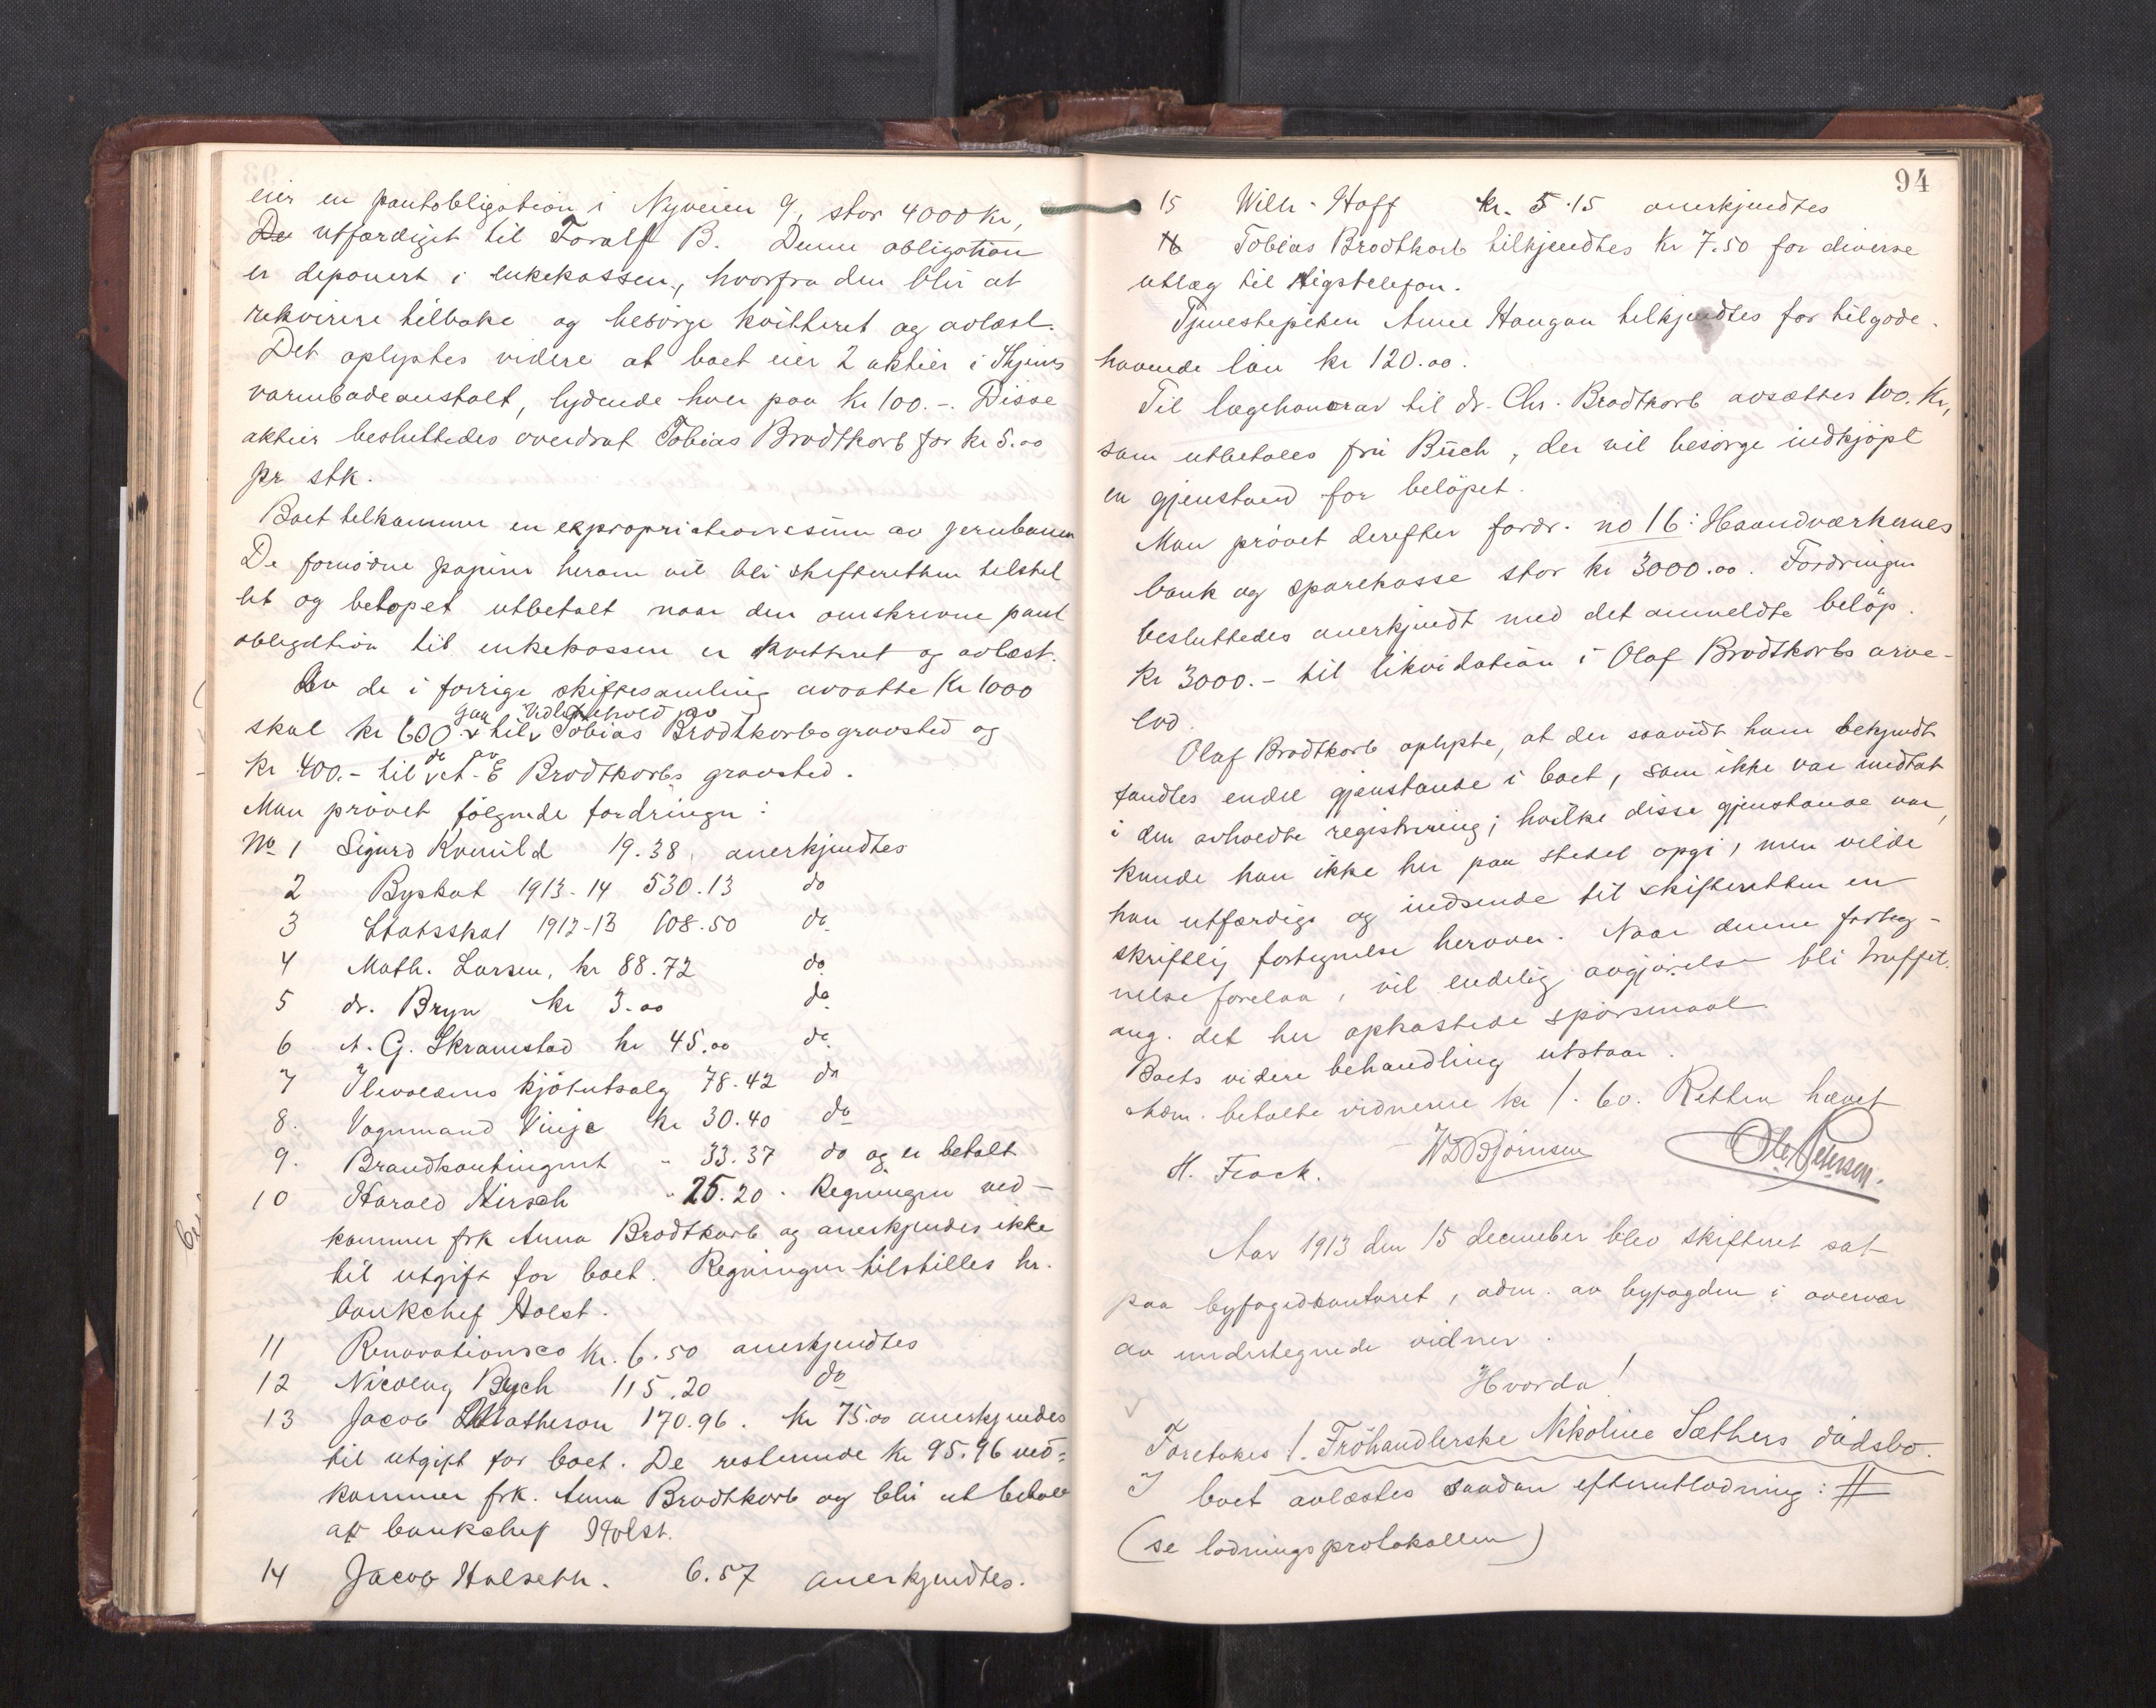 eier en pantobligation i Nyveien 9, stor 4000 kr,
De utfærdiget til Toralf B. Denne obligation
er deponert i enkekassen, hvorfra den blir at
rekvirere tilbake og besörge kvitteret og avlæst.
Det oplystes videre at boet eier 2 aktier i Thjems
varmbadeanstalt, lydende hver paa kr 100.-. Disse
aktier besluttedes overdrat Tobias Brodtkorb for kr 5.00
pr stk.
Boet tilkommer en expropriationssum av jernbanen
De fornödne papirer herom vil bli skifteretten tilstil
let og belöpet utbetalt naar den omskrevne pant
obligation til enkekassen er kvitteret og avlæst.
Av de i forrige skiftesamling avsatte kr 1000
skal kr 600.- til vedlikehold av Tobias Brodtkorbs gravsted og
kr 400.- til do av A. E Brodtkorbs gravsted.
Man prövet fölgende fordringer:
No 1 Sigurd Kvenild 19.38, anerkjendtes
2 Byskat 1913-14 530.13 do
3 Statsskat 1912-13 108.50 do
4 Math. Larsen, kr 88.72 do
5 dr. Bryn kr 3.00 do
6 A. G. Skramstad kr 45.00 do
7 Ilevoldens kjötutsalg 78.42 do
8. Vognmand Vinje kr 30.40 do
9. Brandkontingent " 33.37 do og er betalt
10 Harald Hirsch " 25.20. Regningen ved-
kommer frk Anna Brodtkorb og anerkjendes ikke
til utgift for boet. Regningen tilstilles hr.
bankchef Holst.
11 Renovationsco kr. 6.50 anerkjendtes
12 Nicolay Buch 115.20 do
13 Jacob Matheson 170.96. kr 75.00 anerkjendes
til utgift for boet. De resterende kr 95.96 ved-
kommer frk. Anna Brodtkorb og blir at betale
av bankchef Holst.
14 Jacob Halseth. 6.57 anerkjendtes.
94
15 Wilh. Hoff kr. 5.15 anerkjendtes
16 Tobias Brodtkorb tilkjendtes kr 7.50 for diverse
utlæg til rigstelefon.
Tjenestepiken Anne Haugan tilkjendtes for tilgode-
havende lön kr 120.00.
Til lægehonorar til dr. Chr. Brodtkorb avsættes 100. kr,
som utbetales fru Büch, der vil besörge indkjöpt
en gjenstand for belöpet.
Man prövet derefter fordr. no 16: Haandværkernes
bank og sparekasse stor kr 3000.00. Fordringen
besluttedes anerkjendt med det anmeldte belöp.
kr 3000.- til likvidation i Olaf Brodtkorbs arve-
lod.
Olaf Brodtkorb oplyste, at der saavidt ham bekjendt
fandtes endel gjenstande i boet, som ikke var medtat
i den avholdte registrering; hvilke disse gjenstande var,
kunde han ikke her paa stedet opgi, men vilde
han utfærdige og indsende til skifteretten en
skriftlig fortegnelse herover. Naar denne forteg-
nelse forelaa, vil endelig avgjörelse bli truffet
ang. det her opkastede spörsmaal
Boets videre behandling utstaar.
Adm. betalte vidnerne kr 1.60. Retten hævet
H. Frack. WDBjörnsen Ole Petersen.
Aar 1913 den 15 december blev skifteret sat
paa byfogedkontoret, adm. av byfogden i overvær
av undertegnede vidner.
Hvorda!
Foretokes 1. Fröhandlerske Nikoline Sæthers dödsbo.
I boet avlæstes saadan efterutlodning: #
(se lodningsprotokollen)